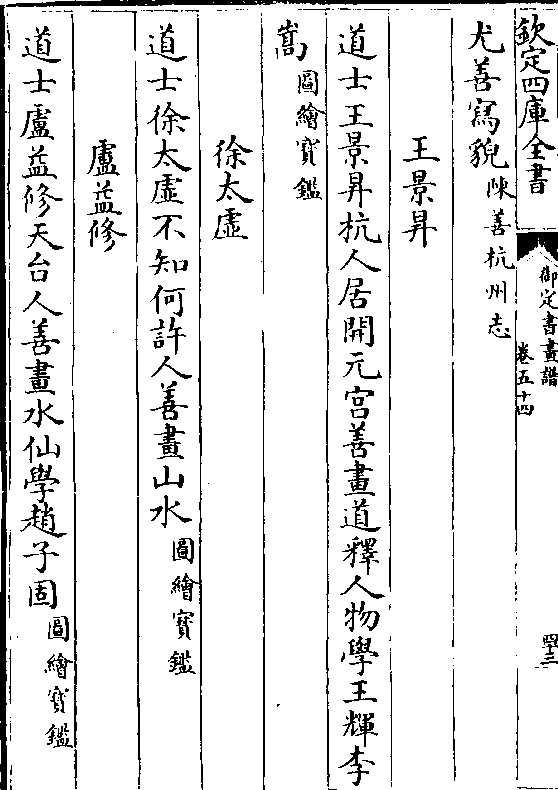 欽定四庫全書
御定書畫譜
卷五十四
四十三
尤善寫貌陳善杭州志
王景昇
道士王景昇杭人居開元宮善畫道釋人物學王輝李
嵩圖繪寳鑑
徐太虛
道士徐太虛不知何許人善畫山水圖繪寳鑑
盧益修
道士盧益修天台人善畫水仙學趙子固圖繪寳鑑